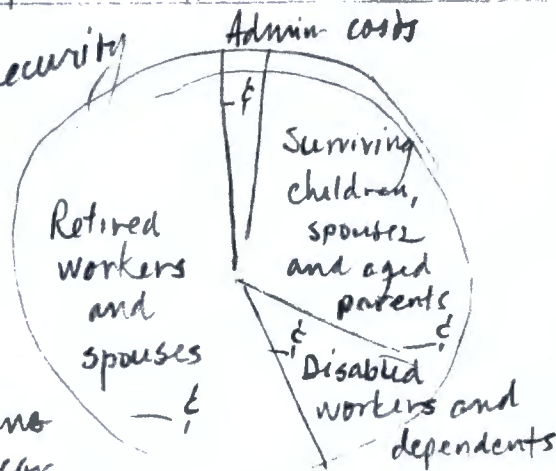 Admin costs
ecurity
— ¢
Surviving
children,
spouses
and aged
parents
— ¢
Retired
workers
and
spouses
— ¢
— ¢
Disabled
workers and
dependents